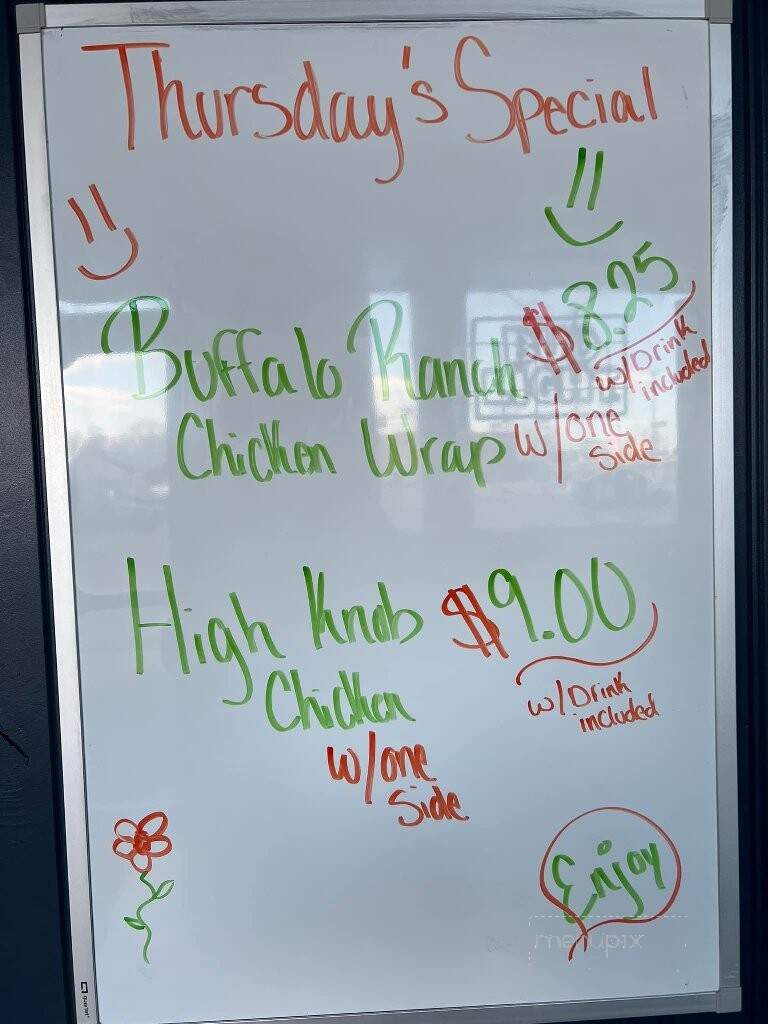 Thursday's Special
Buffalo Ranch $8.25
w/Drink
included
Chicken Wrap w/one
side
High Knob $9.00
Chicken
w/Drink
included
w/one
side
Enjoy
menupix